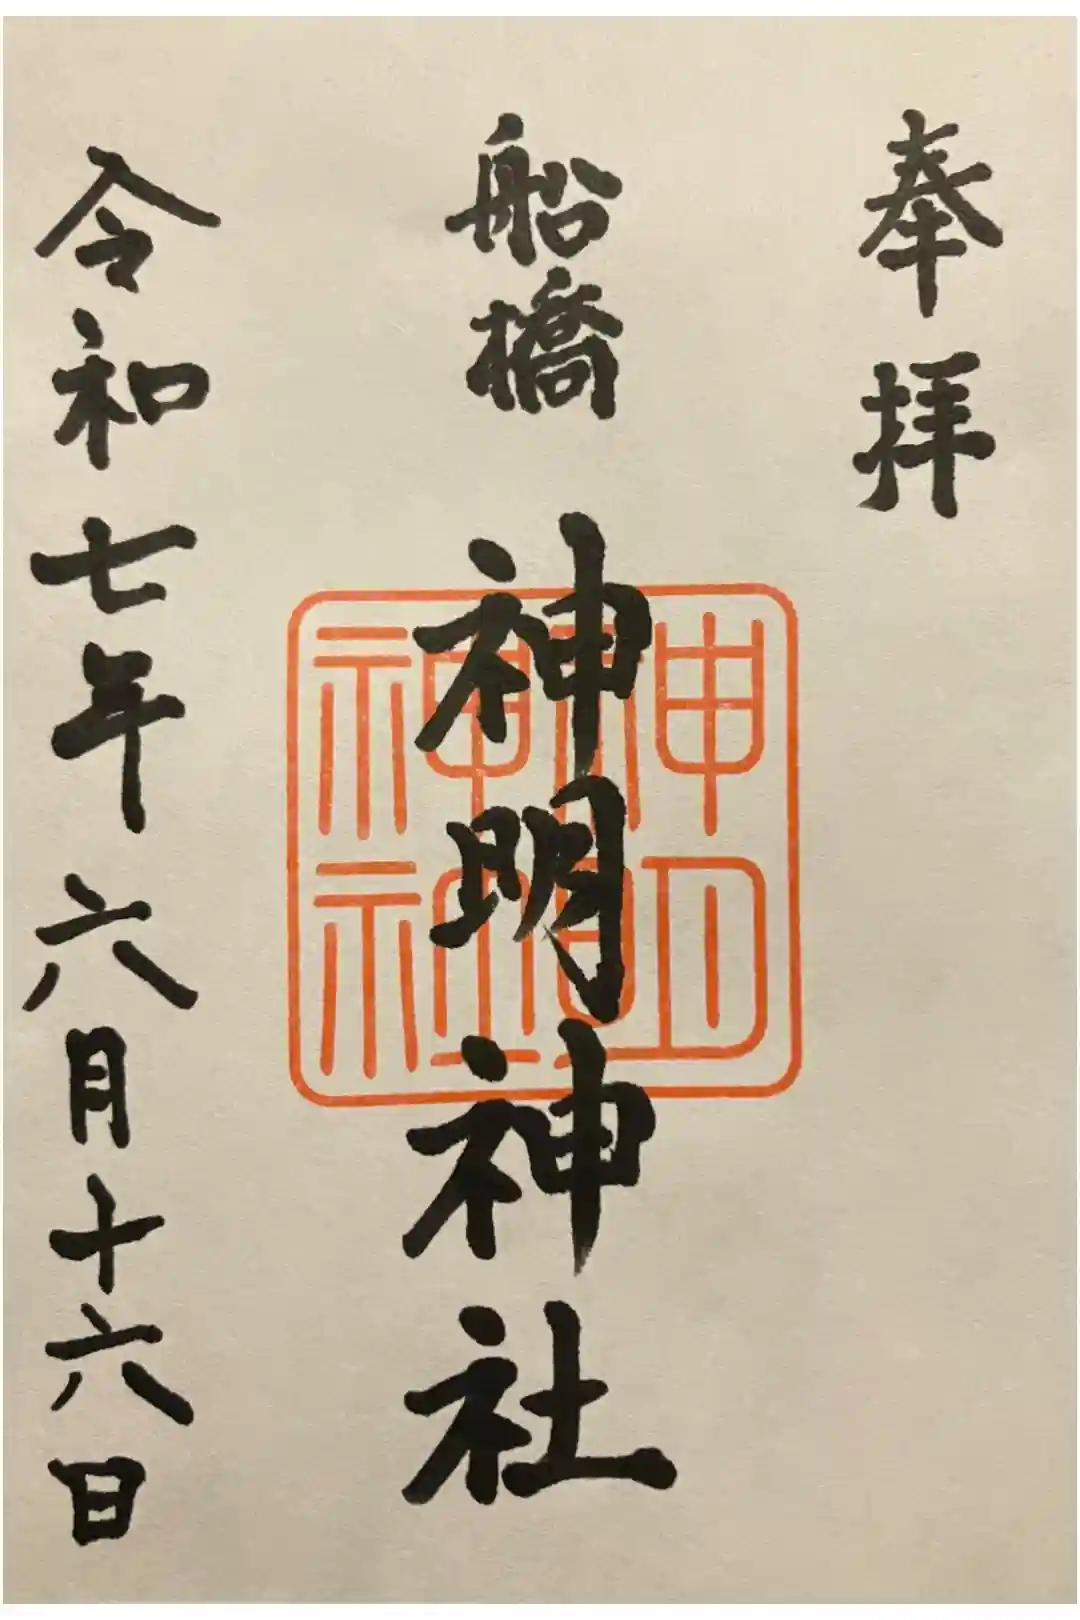 奉拝
船橋
神明神社
神明
神社
令和七年六月十六日